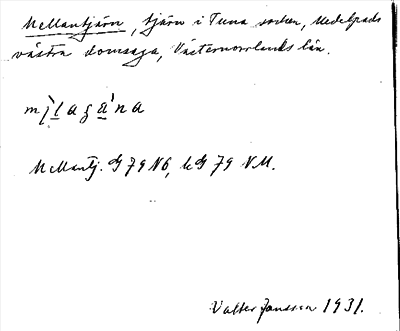 Mellantjärn, tjärn i Tuna socken, Medelpads
västra domsaga, Västernorrlands län.
Mellantj. G 79 NÖ, kG 79 NM.
Valter Jansson 1931.